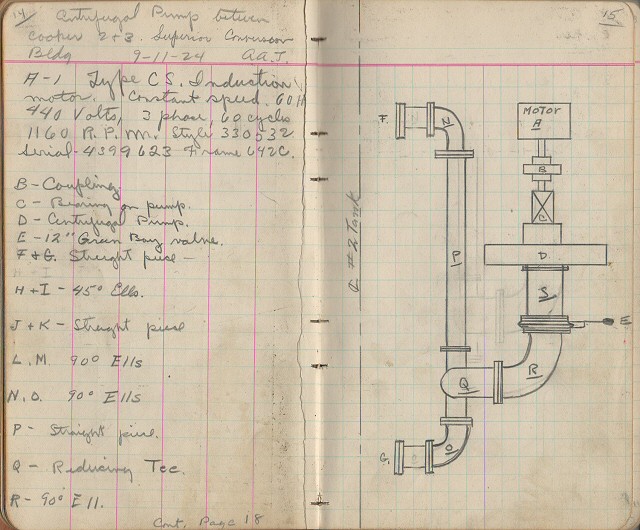 14
Centrifugal Pump between
cooker 2+3. Superior Conversion
Bldg 9-11-24 A.A.J.
A-1 Type C S. Induction
motor. Constant speed. 60 H
440 Volts, 3 phase, 60 cycles
1160 R.P.M. Style 330532
Serial-4399623 Frame 642C.
B - Coupling
C - Bearing on pump.
D - Centrifugal Pump.
E - 12" Green Bay valve.
F + G. Streight piece -
H + I - 45° Ells.
J + K - Streight piece
L. M. 90° Ells
N. O. 90° Ells
P - Straight piece.
Q - Reducing Tee.
R - 90° Ell.
Cont. Page 18
15.
F.
N
MOTOR
A
B
C
D.
P
S
E
R
Q
O
G.
#2 Tank